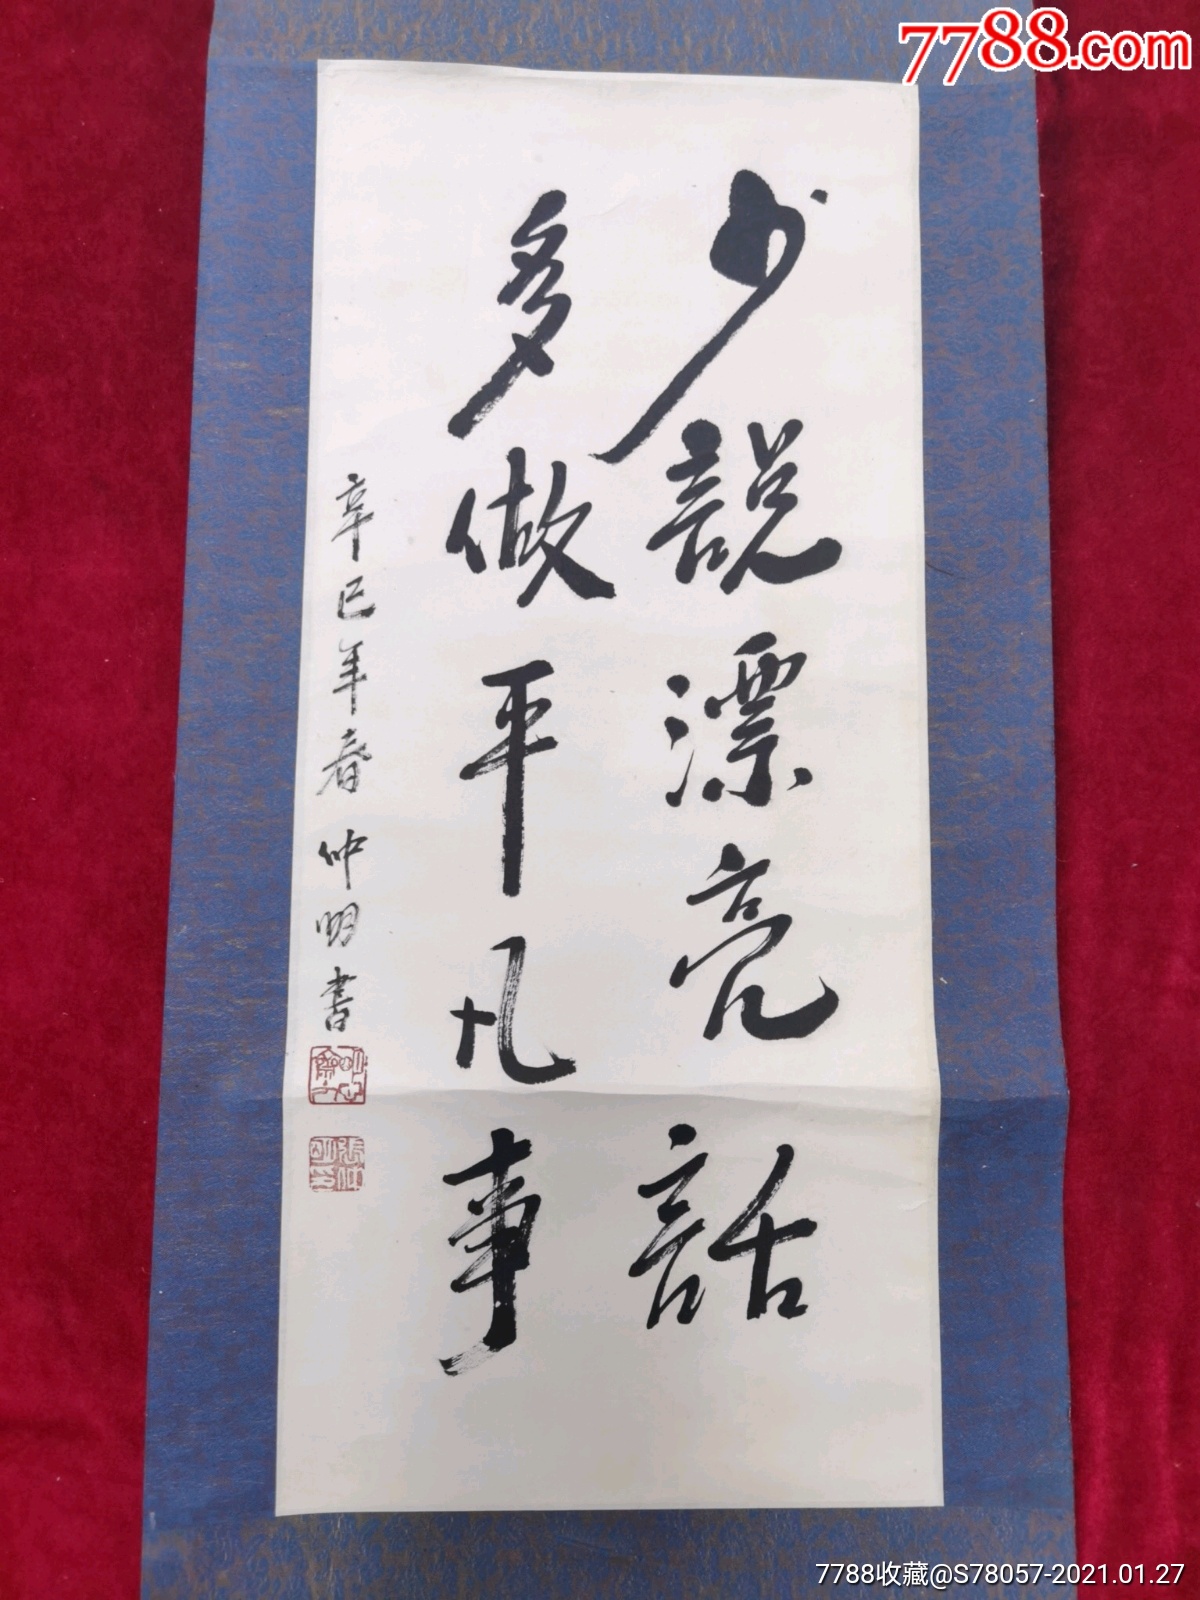 7788.com
少說漂亮話
多做平凡事
辛巳年春仲明書
7788收藏@S78057-2021.01.27